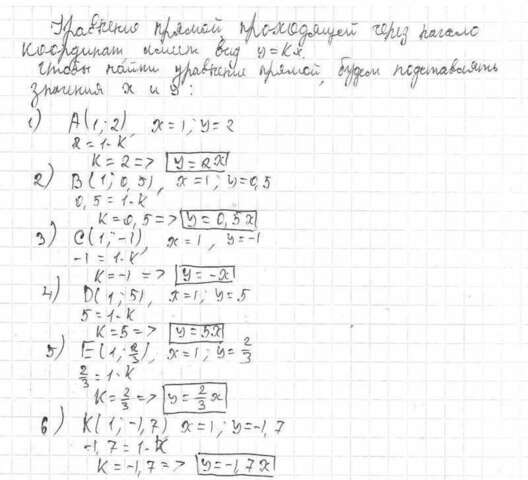 Уравнение прямой проходящей через начало
координат имеет вид y=kx.
Чтобы найти уравнение прямой, будем подставлять
значения x и y:
1) A(1; 2), x=1; y=2
2=1·k
k=2 => y=2x
2) B(1; 0,5), x=1; y=0,5
0,5=1·k
k=0,5 => y=0,5x
3) C(1; -1), x=1, y=-1
-1=1·k
k=-1 => y=-x
4) D(1; 5), x=1; y=5
5=1·k
k=5 => y=5x
5) E(1; 2/3), x=1; y=2/3
2/3=1·k
k=2/3 => y=2/3x
6) K(1; -1,7) x=1; y=-1,7
-1,7=1·k
k=-1,7 => y=-1,7x